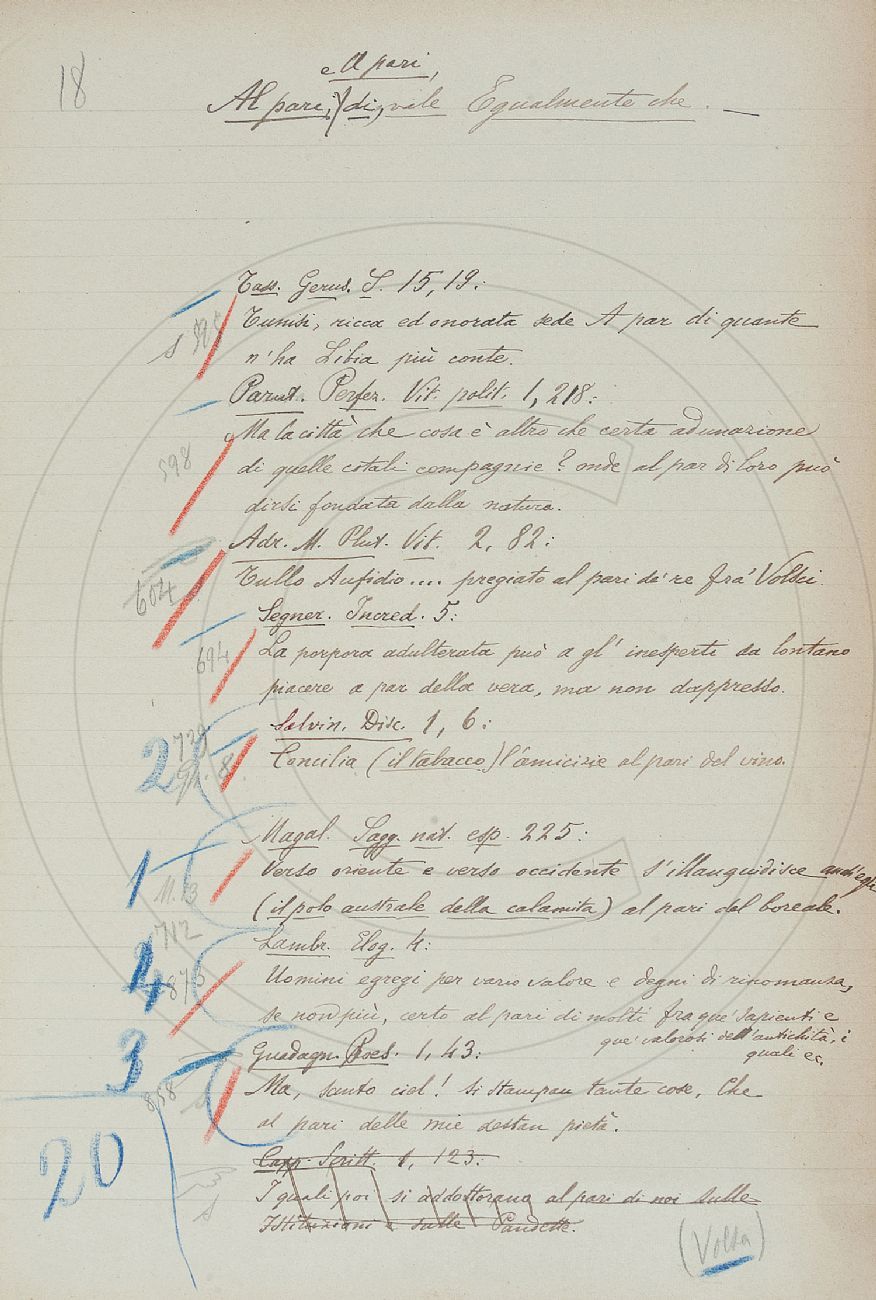 18
e A pari,
Al pari, di, vale Egualmente che. —
Tass. Gerus. S. 15, 19:
Tunisi, ricca ed onorata sede A par di quante
n'ha Libia più conte.
Parut. Perfez. Vit. polit. 1, 218:
Ma la città che cosa è altro che certa adunazione
di quelle cotali compagnie? onde al par di loro può
dirsi fondata dalla natura.
598
Adr. M. Plut. Vit. 2, 82:
Tullo Aufidio.... pregiato al pari de' re fra' Volsci
604
Segner. Incred. 5:
La porpora adulterata può a gl' inesperti da lontano
694
piacere a par della vera, ma non dappresso.
Salvin. Disc. 1, 6:
2
Concilia (il tabacco) l'amicizie al pari del vino.
Magal. Sagg. nat. esp. 225:
1
Verso oriente e verso occidente s'illanguidisce anch'egli
(il polo australe della calamita) al pari del boreale.
712
Lambr. Elog. 4:
4
Uomini egregi per vario valore e degni di rinomanza,
se non più, certo al pari di molti fra que' sapienti e
que' valorosi dell'antichità, i
quali ec.
Guadagn. Poes. 1, 43:
3
858
Ma, santo ciel! si stampan tante cose, Che
al pari delle mie destan pietà.
20
Capp. Scritt. 1, 123:
I quali poi si addottorano al pari di noi sulle
Istituzioni e sulle Pandette.
(Volta)